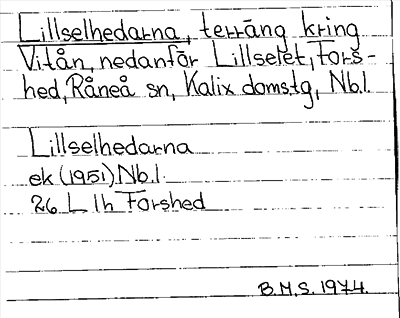 Lillselhedarna, terräng kring
Vitån, nedanför Lillselet, Fors-
hed, Råneå sn, Kalix domstg, Nb.l.
Lillselhedarna
ek (1951) Nb.l.
26 L 1h Forshed
B.M.S. 1974.